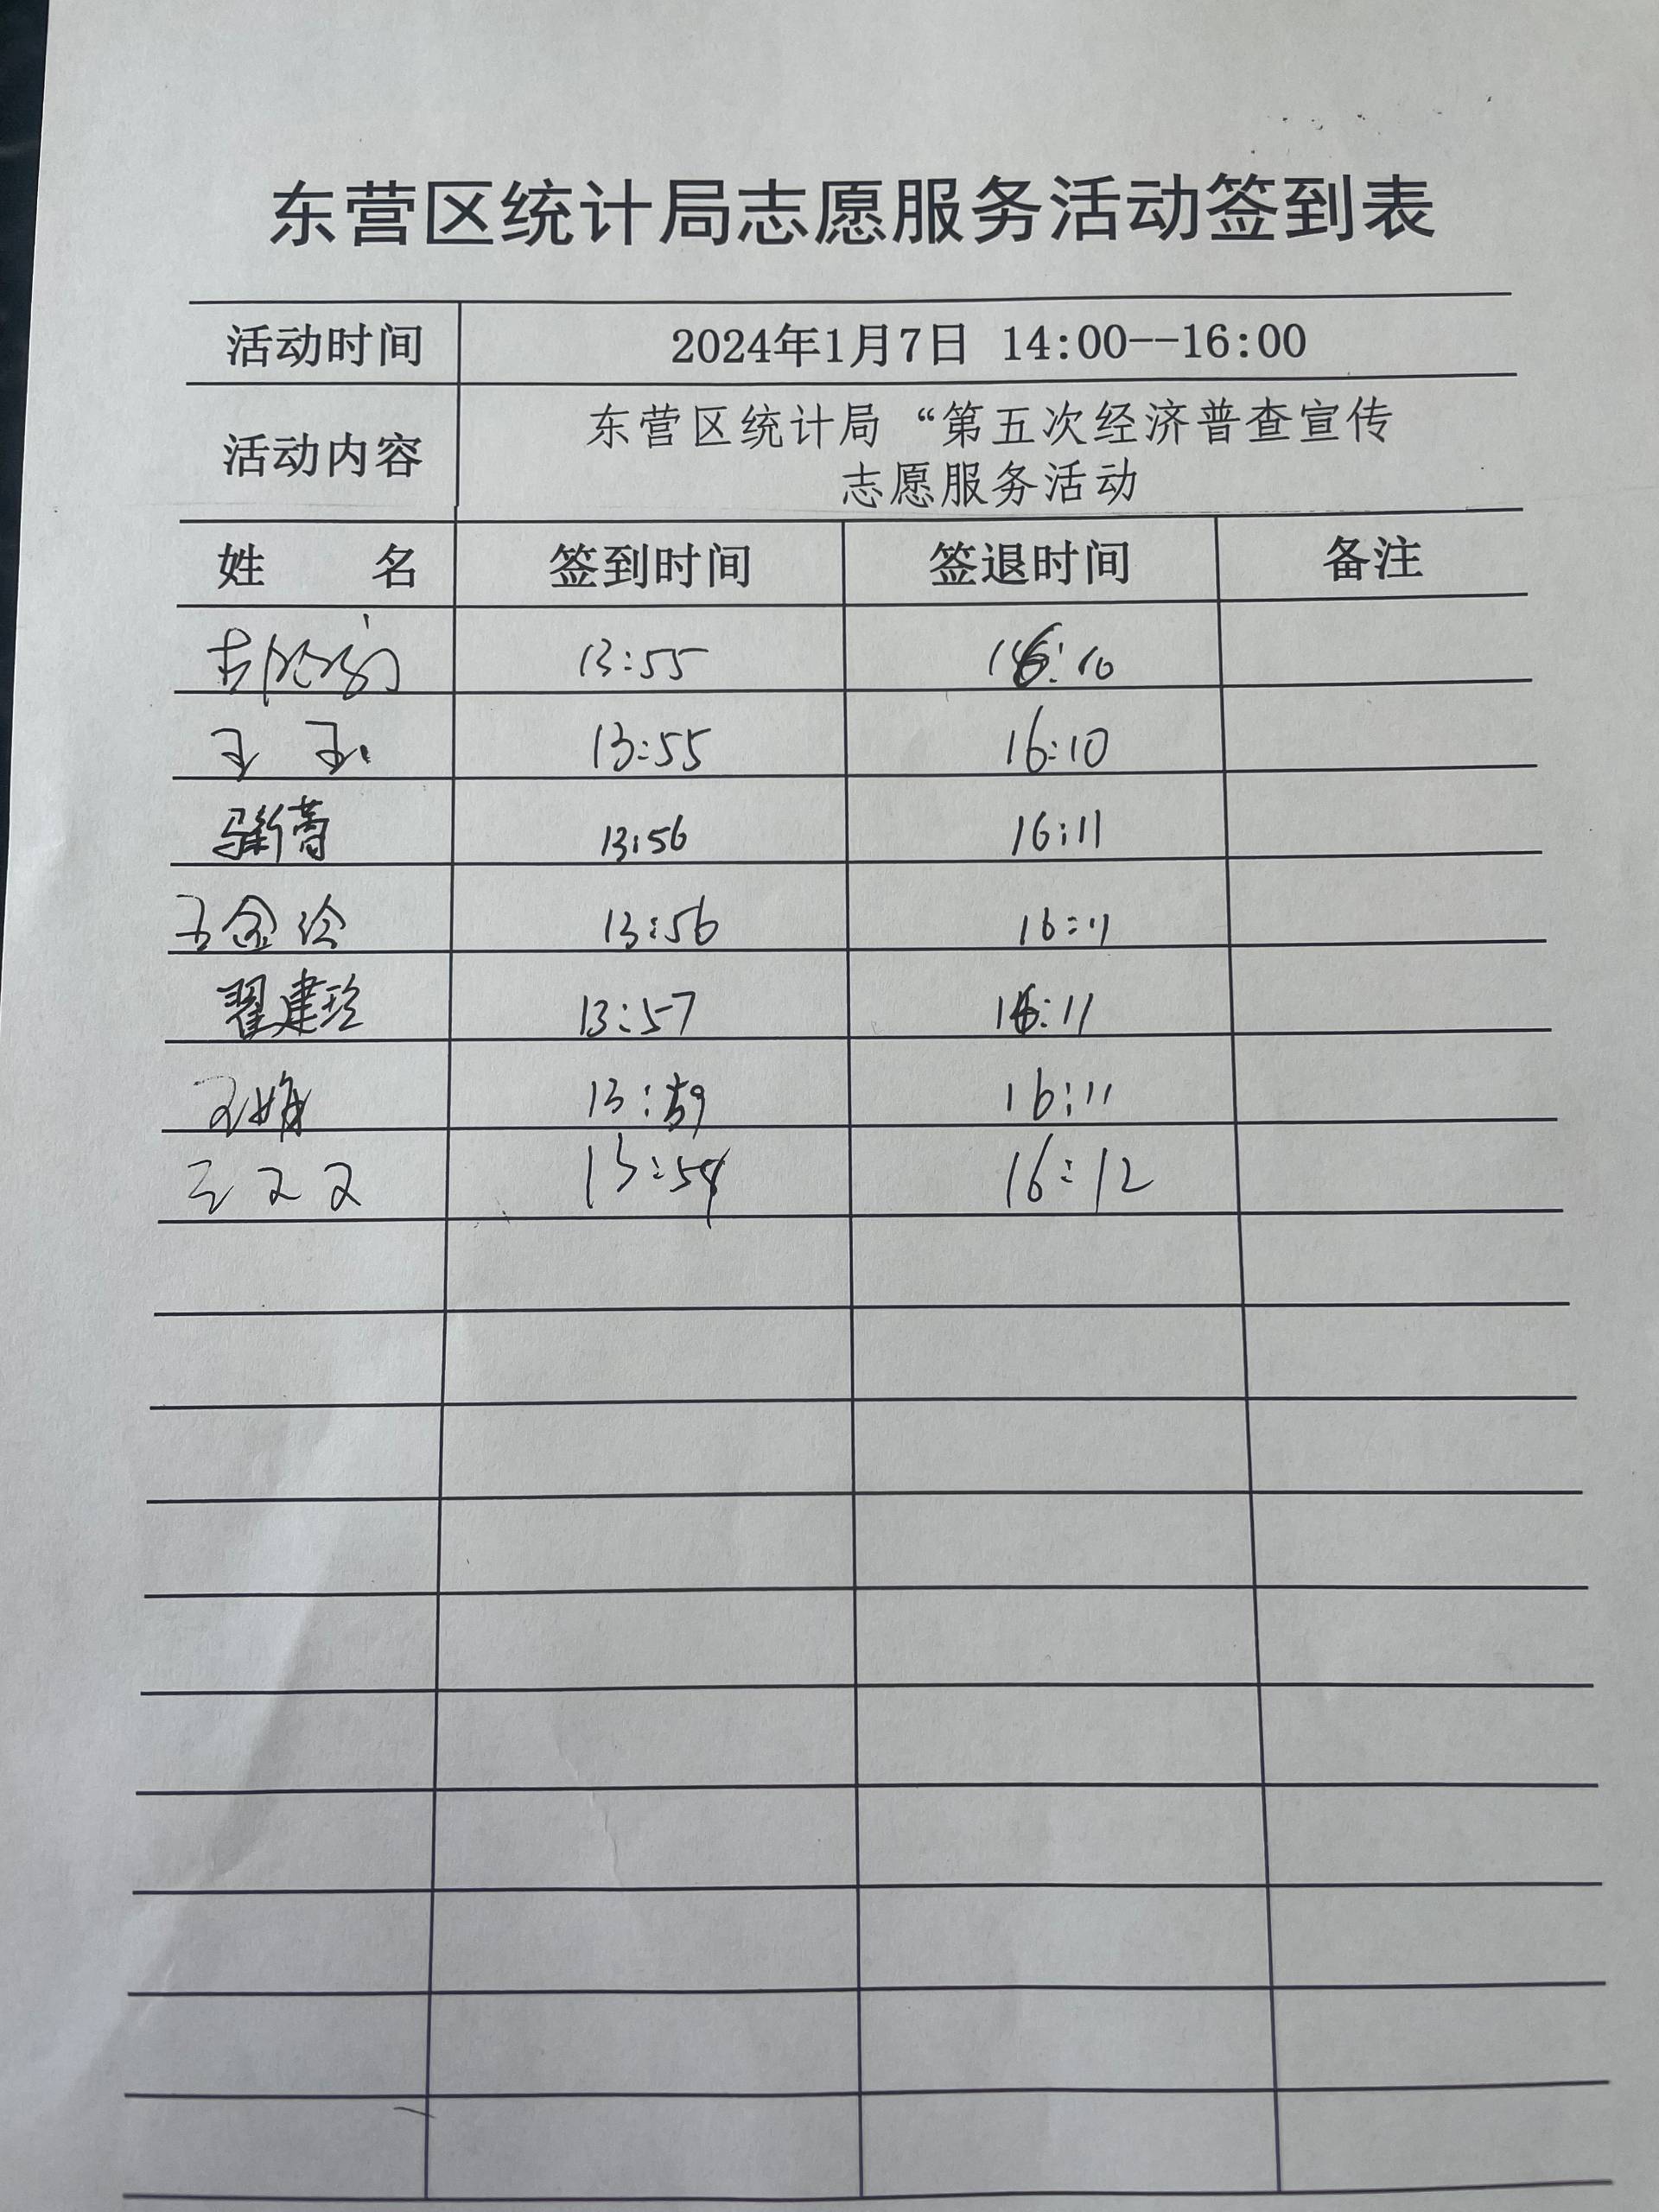 东营区统计局志愿服务活动签到表
活动时间 2024年1月7日 14:00--16:00
活动内容 东营区统计局“第五次经济普查宣传
志愿服务活动
姓 名 签到时间 签退时间 备注
13:55 16:10
王 玉 13:55 16:10
13:56 16:11
王金玲 13:56 16:11
翟建玲 13:57 16:11
王 13:59 16:11
王 13:59 16:12